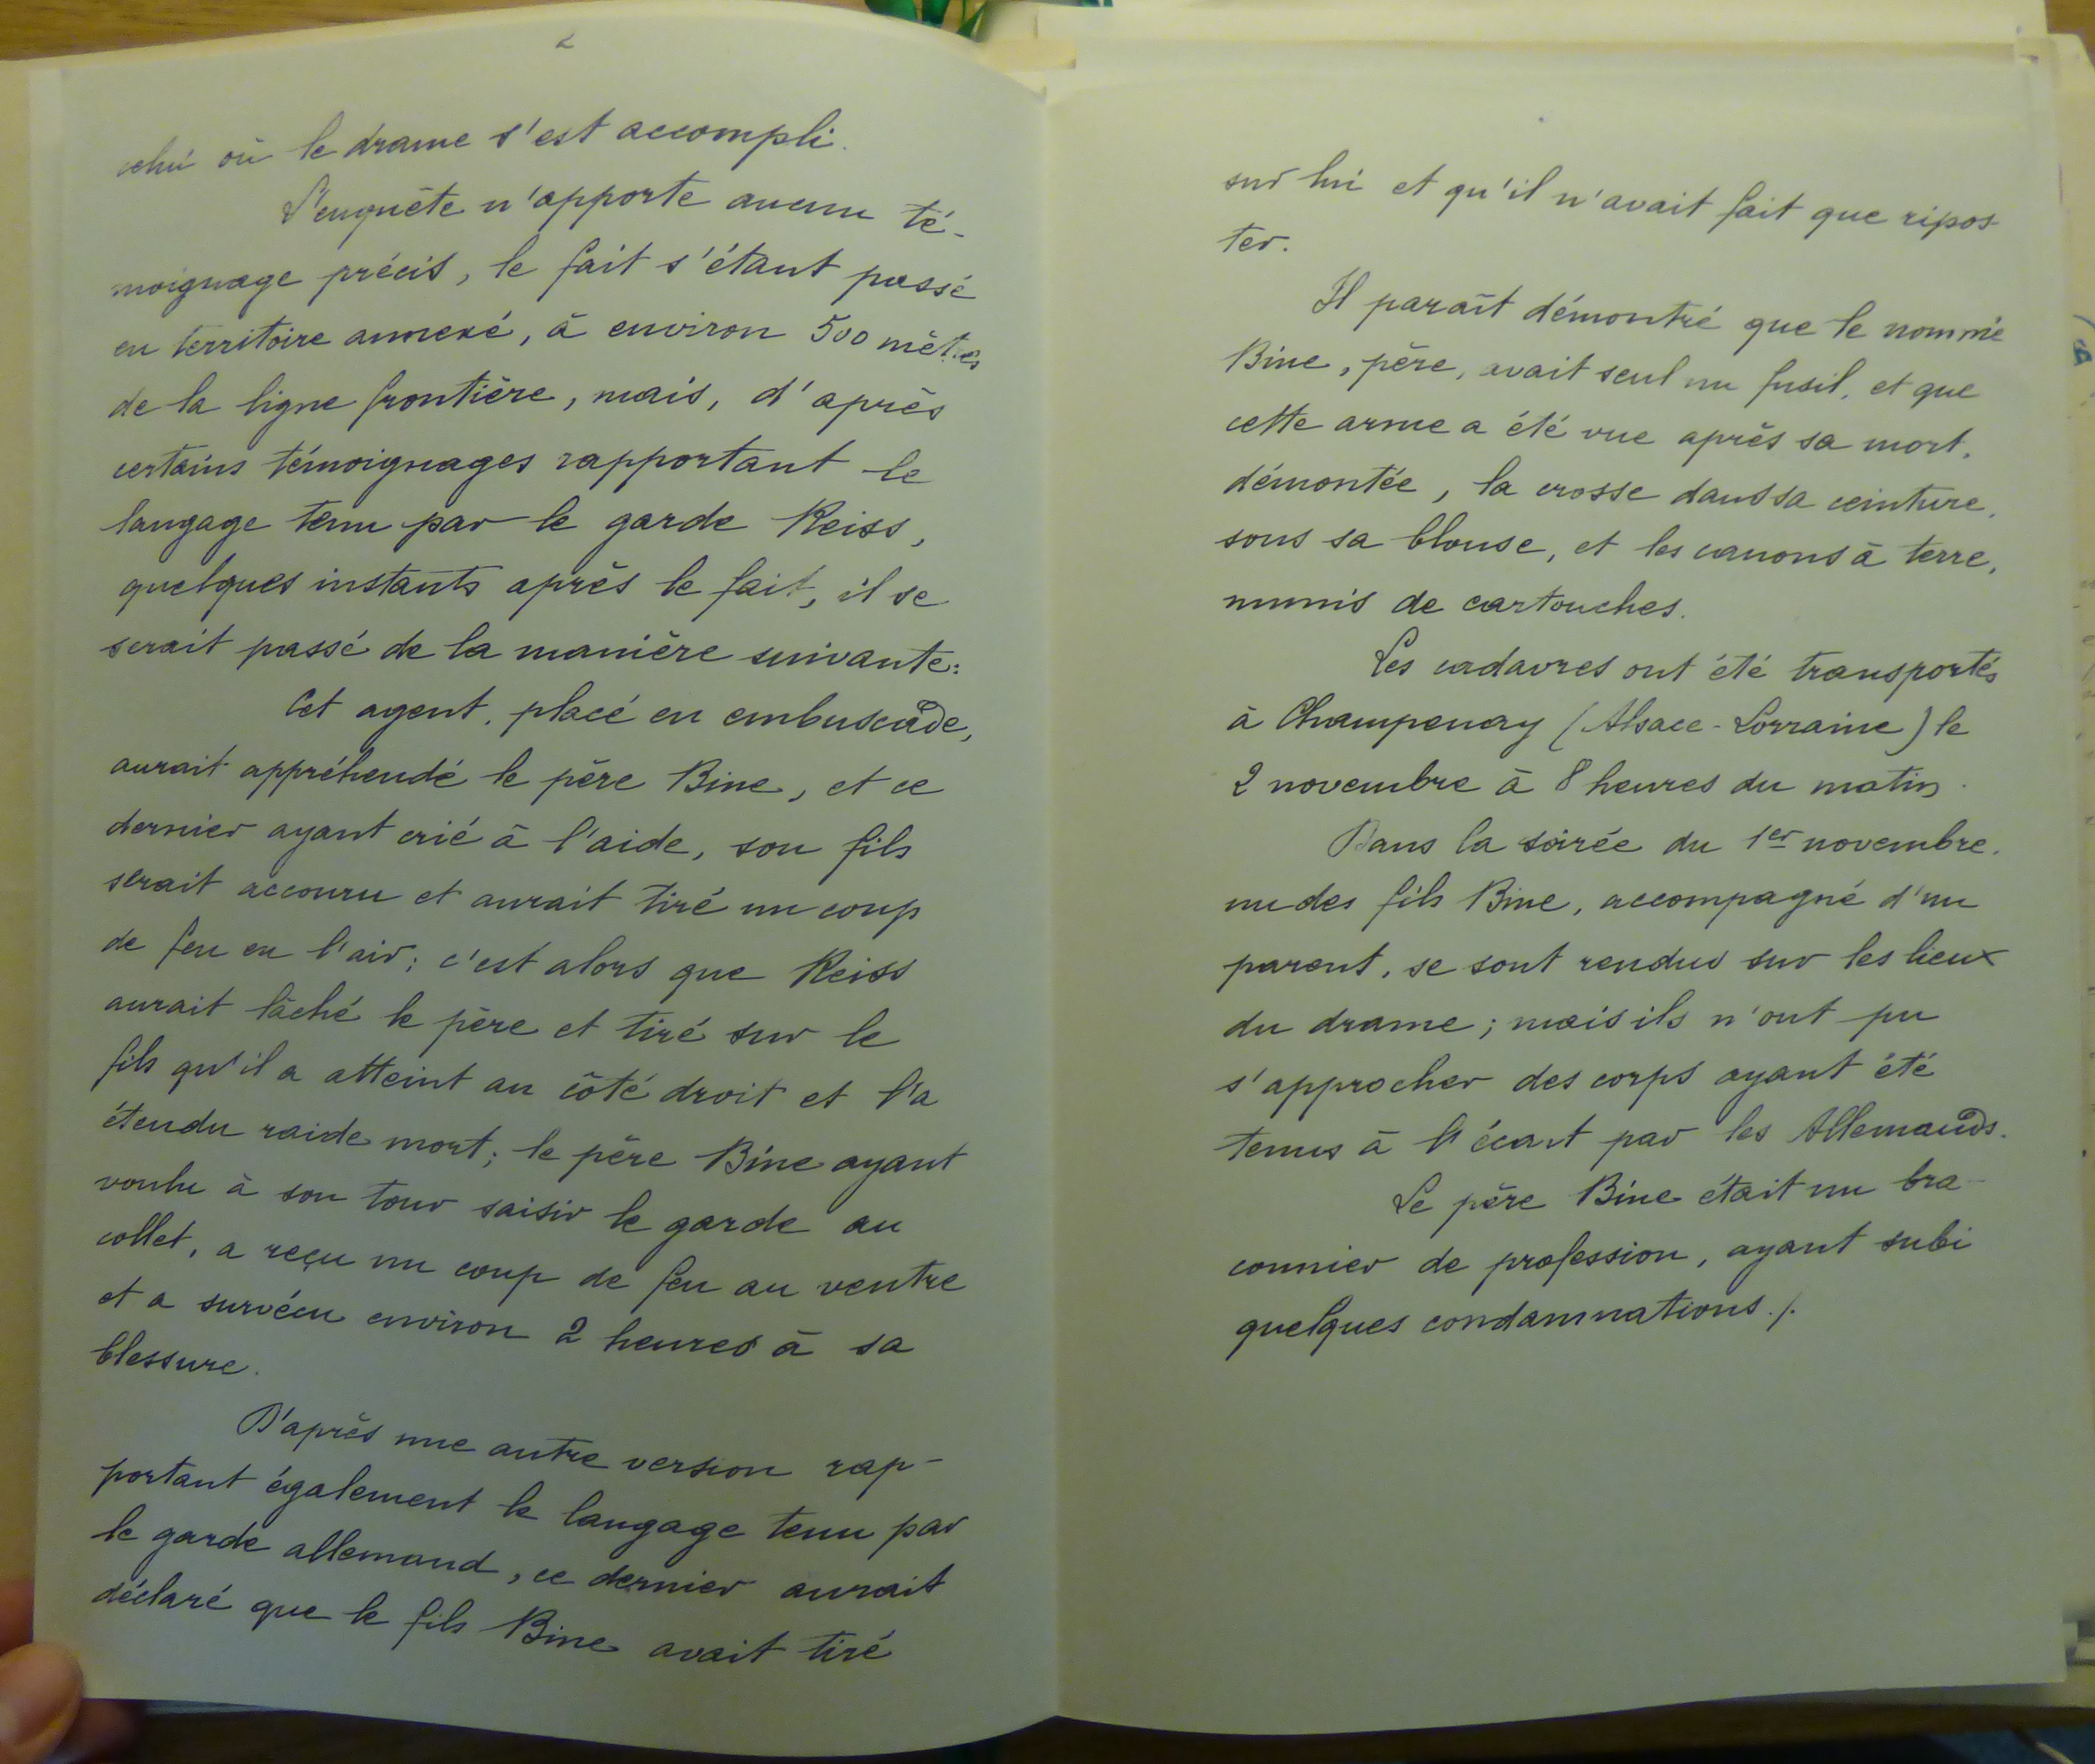 2
celui où le drame s'est accompli.
L'enquête n'apporte aucun té-
moignage précis, le fait s'étant passé
en territoire annexé, à environ 500 mètres
de la ligne frontière, mais, d'après
certains témoignages rapportant le
langage tenu par le garde Reiss,
quelques instants après le fait, il se
serait passé de la manière suivante:
Cet agent, placé en embuscade,
aurait appréhendé le père Bine, et ce
dernier ayant crié à l'aide, son fils
serait accouru et aurait tiré un coup
de feu en l'air; c'est alors que Reiss
aurait lâché le père et tiré sur le
fils qu'il a atteint au côté droit et l'a
étendu raide mort; le père Bine ayant
voulu à son tour saisir le garde au
collet, a reçu un coup de feu au ventre
et a survécu environ 2 heures à sa
blessure.
D'après une autre version rap-
portant également le langage tenu par
le garde allemand, ce dernier aurait
déclaré que le fils Bine avait tiré
sur lui et qu'il n'avait fait que ripos-
ter.
Il paraît démontré que le nommé
Bine, père, avait seul un fusil, et que
cette arme a été vue après sa mort,
démontée, la crosse dans sa ceinture,
sous sa blouse, et les canons à terre,
munis de cartouches.
Les cadavres ont été transportés
à Champenay (Alsace-Lorraine) le
2 novembre à 8 heures du matin.
Dans la soirée du 1er novembre,
un des fils Bine, accompagné d'un
parent, se sont rendus sur les lieux
du drame; mais ils n'ont pu
s'approcher des corps ayant été
tenus à l'écart par les Allemands.
Le père Bine était un bra-
connier de profession, ayant subi
quelques condamnations./.